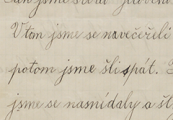 V tom jsme se navečeřeli
potom jsme šli spát.
jsme se nasnídaly a